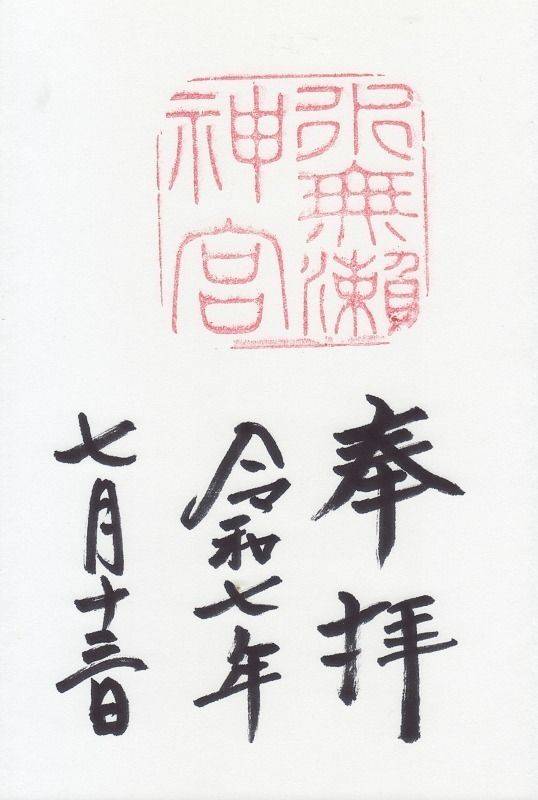 水無瀬
神宮
奉拝
令和七年
七月十三日